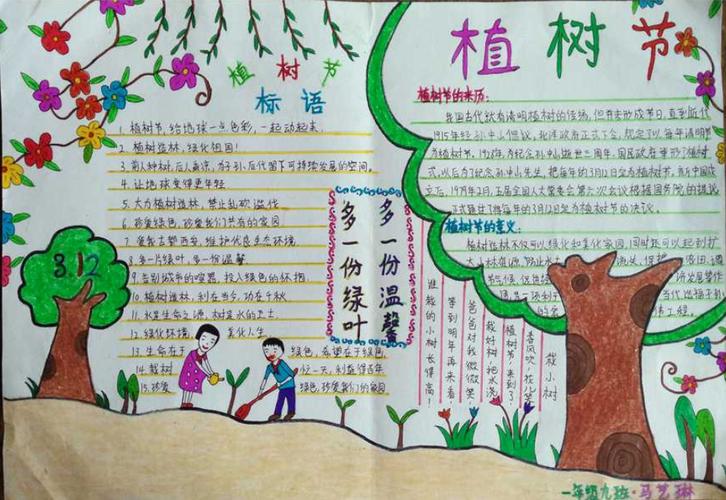 植树节
标语
1. 植树节, 给地球一点色彩, 一起动起来.
2. 植树造林, 绿化祖国!
3. 前人种树, 后人乘凉, 为子孙后代留下可持续发展的空间.
4. 让地球变得更年轻
5. 大力植树造林, 禁止乱砍滥伐
6. 珍爱绿色, 珍爱我们共有的家园
7. 爱我古黎西安, 维护优良生态环境.
8. 多一片绿叶, 多一份温馨
9. 告别城市的喧嚣, 投入绿色的怀抱
10. 植树造林, 利在当今, 功在千秋
11. 水是生命之源, 树是水的卫士
12. 绿化环境, 美化人生
13. 生命在于绿色, 希望在于绿色
14. 栽树忙一天, 利益得百年
15. 珍爱绿色, 珍爱我们的家园
3.12
多一份温馨
多一份绿叶
植树节
植树节的来历:
我国古代就有清明植树的传统, 但并未形成节日, 直到近代
1915年经孙中山倡议, 北洋政府正式下令, 规定了以每年清明节
为植树节. 1928年, 为纪念孙中山逝世三周年, 国民政府举行了植树
式, 以后为了纪念孙中山先生, 把每年的3月12日定为植树节. 新中国成
立后, 1979年2月, 五届全国人大常委会第六次会议根据国务院的提议
正式通过了将每年的3月12日定为植树节的决议.
植树节的意义:
植树造林不仅可以绿化和美化家园, 同时还可以起到扩
大山林资源, 防止水土流失, 保护
栽小树
春风吹, 花儿笑
植树节, 来到了.
栽好树, 把水浇
爸爸对我微微笑:
等到明年再来看.
谁栽的小树长得高!
一年级九班·马艺琳